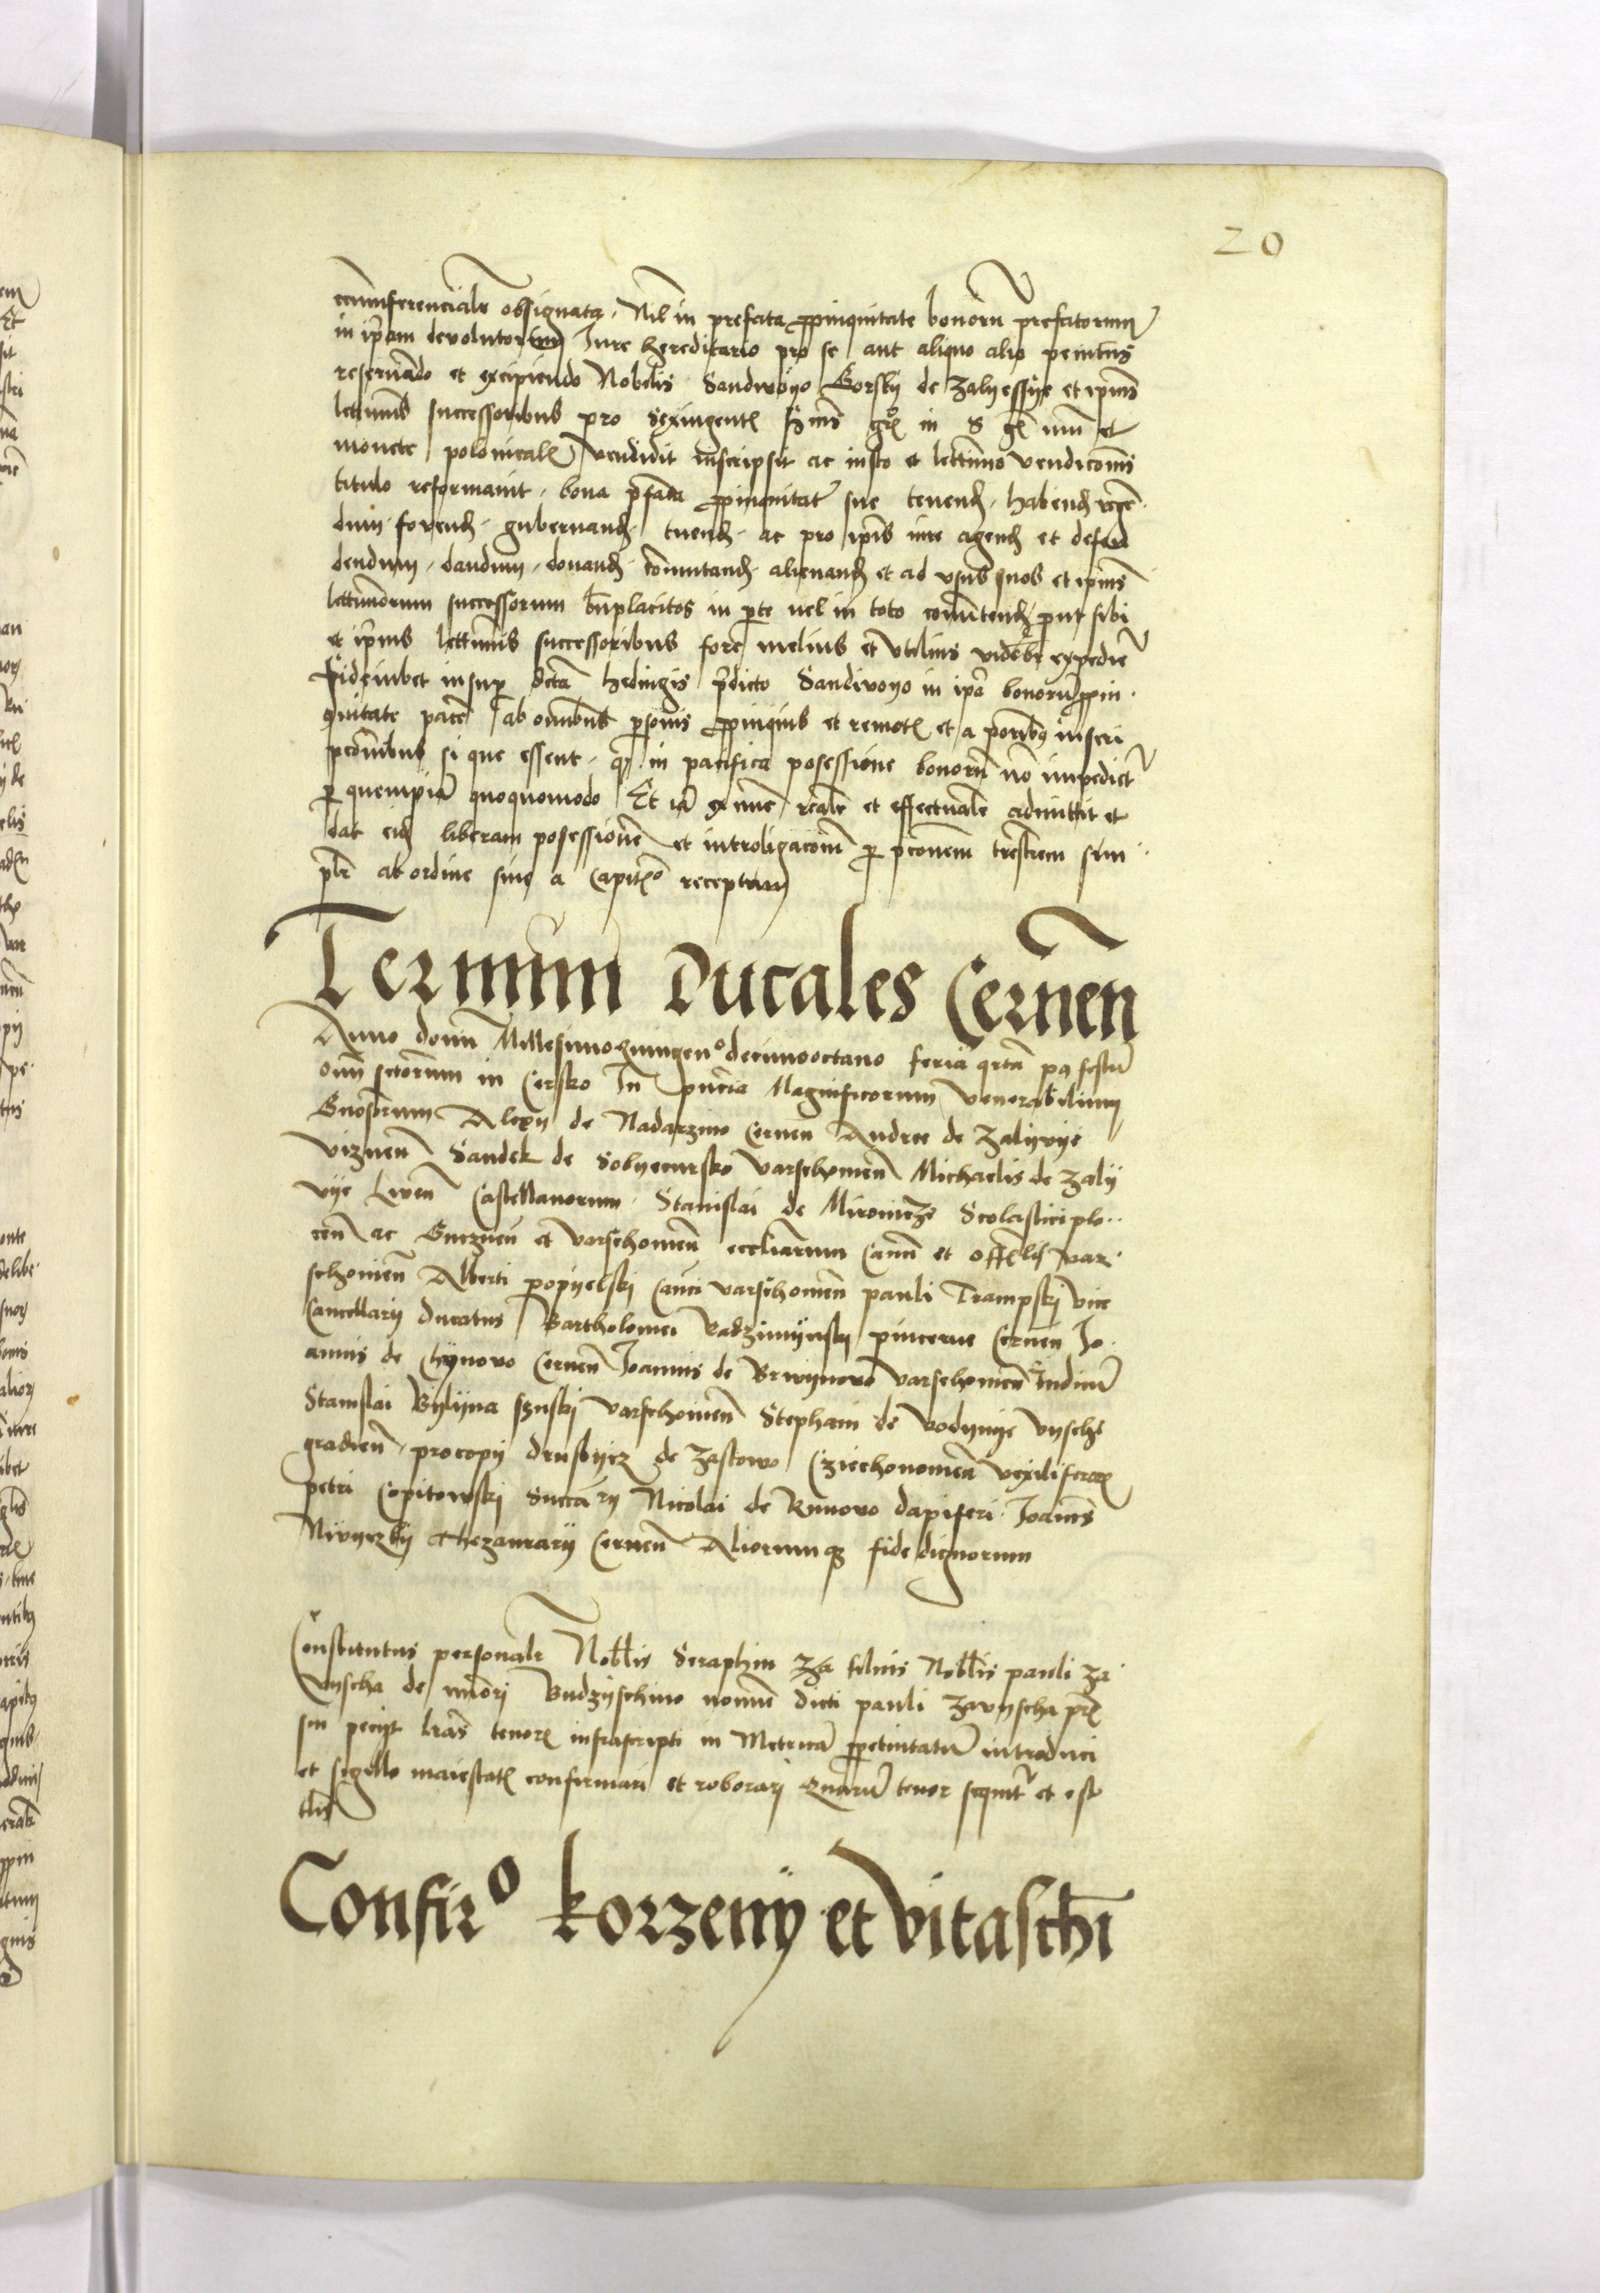 20
ccumferencialr obsignata. Nil in prefata ppinquitate bonorū prefatorum
in ipam devolutorum Jure hereditario pro se aut aliquo alio penitus
reservādo et excipiendo Nobilis Sandivoyo Gorsky de Zalyessye et ipius
lettimis successoribus pro sexingent in et
monete polonicalis vendidit inscripsit ac insto et lettimo vendicōnis
titulo reformavit. bona pfata ppinquitat sue tenend. habend
dum. forend. gubernand. tuend. ac pro ipis iure agend et defen
dendum. dandum. donand. comutand. alienand et ad usus suos et ipius
lettimorum successorum bnplacitos in pte vel in toto convertend put sibi
et ipius lettimis successoribus fore melius et utilius videbr expedire
Fideiubet insup dcta Hedvigis pdicto Sandivoyo in ipa bonorū ppin.
quitate pacē ab omnibus psonis ppinquis et remotis et a poribus inscri
pcōnibus si que essent. q in pacifica posessione bonorū nō impediet
p quempiā quoquomodo Et iā ex nūc realr et effectualr admittit et
dat eid liberam posessionē et introligacōnē p pconem trestrem sim
plr ab ordine sive a Capit° receptum
Termini Ducales Cernen
Anno domi Millesimoquingen° decimooctavo feria qrta pq festū
omi sctorum in Cersko In pncia Magnificorum Venerabilium
Gnosorum Alexy de Nadarzino Cernen Andree de Zalywye
Viznen Sandek de Solyecursko Varschovien Michaelis de Zaly
vye Liven Castellanorum. Stanislai de Mirovicze Scolastici plo..
cen ac Gneznen et Varschovien eccliarum Cann et offclis Var.
schovien Alberti popyelsky Canci Varschovien pauli Trampsky vice
Cancellarij ducatus Bartholomei Radzimynsky pincerne Cernen Jo.
annis de Chynovo Cernen Joannis de Brwynovo Varschovien Judicū
Stanislai Bylyna Varschovien Stephani de Vodynye Vysche
gradien. procopij drusbycz de Zastowo Cziechonovien vexiliferor
petri Copitowsky Succarij Nicolai de Runovo dapiferi Joanis
Nivyczky Thezaurarij Cernen Aliorumq fidedignorum
Constitutus personalr Nobilis Seraphin Za filius Nobilis pauli Za
vyscha de miori Budzyschino noīne dicti pauli Zavyscha pris
sui peciyt lras tenoris infrascripti in Metricā ppetuitatū introduci
et sigillo maiestatis confirmari et roborari Quarū tenor sequit et est
tlis
Confir° Korzeny et Vitaschi